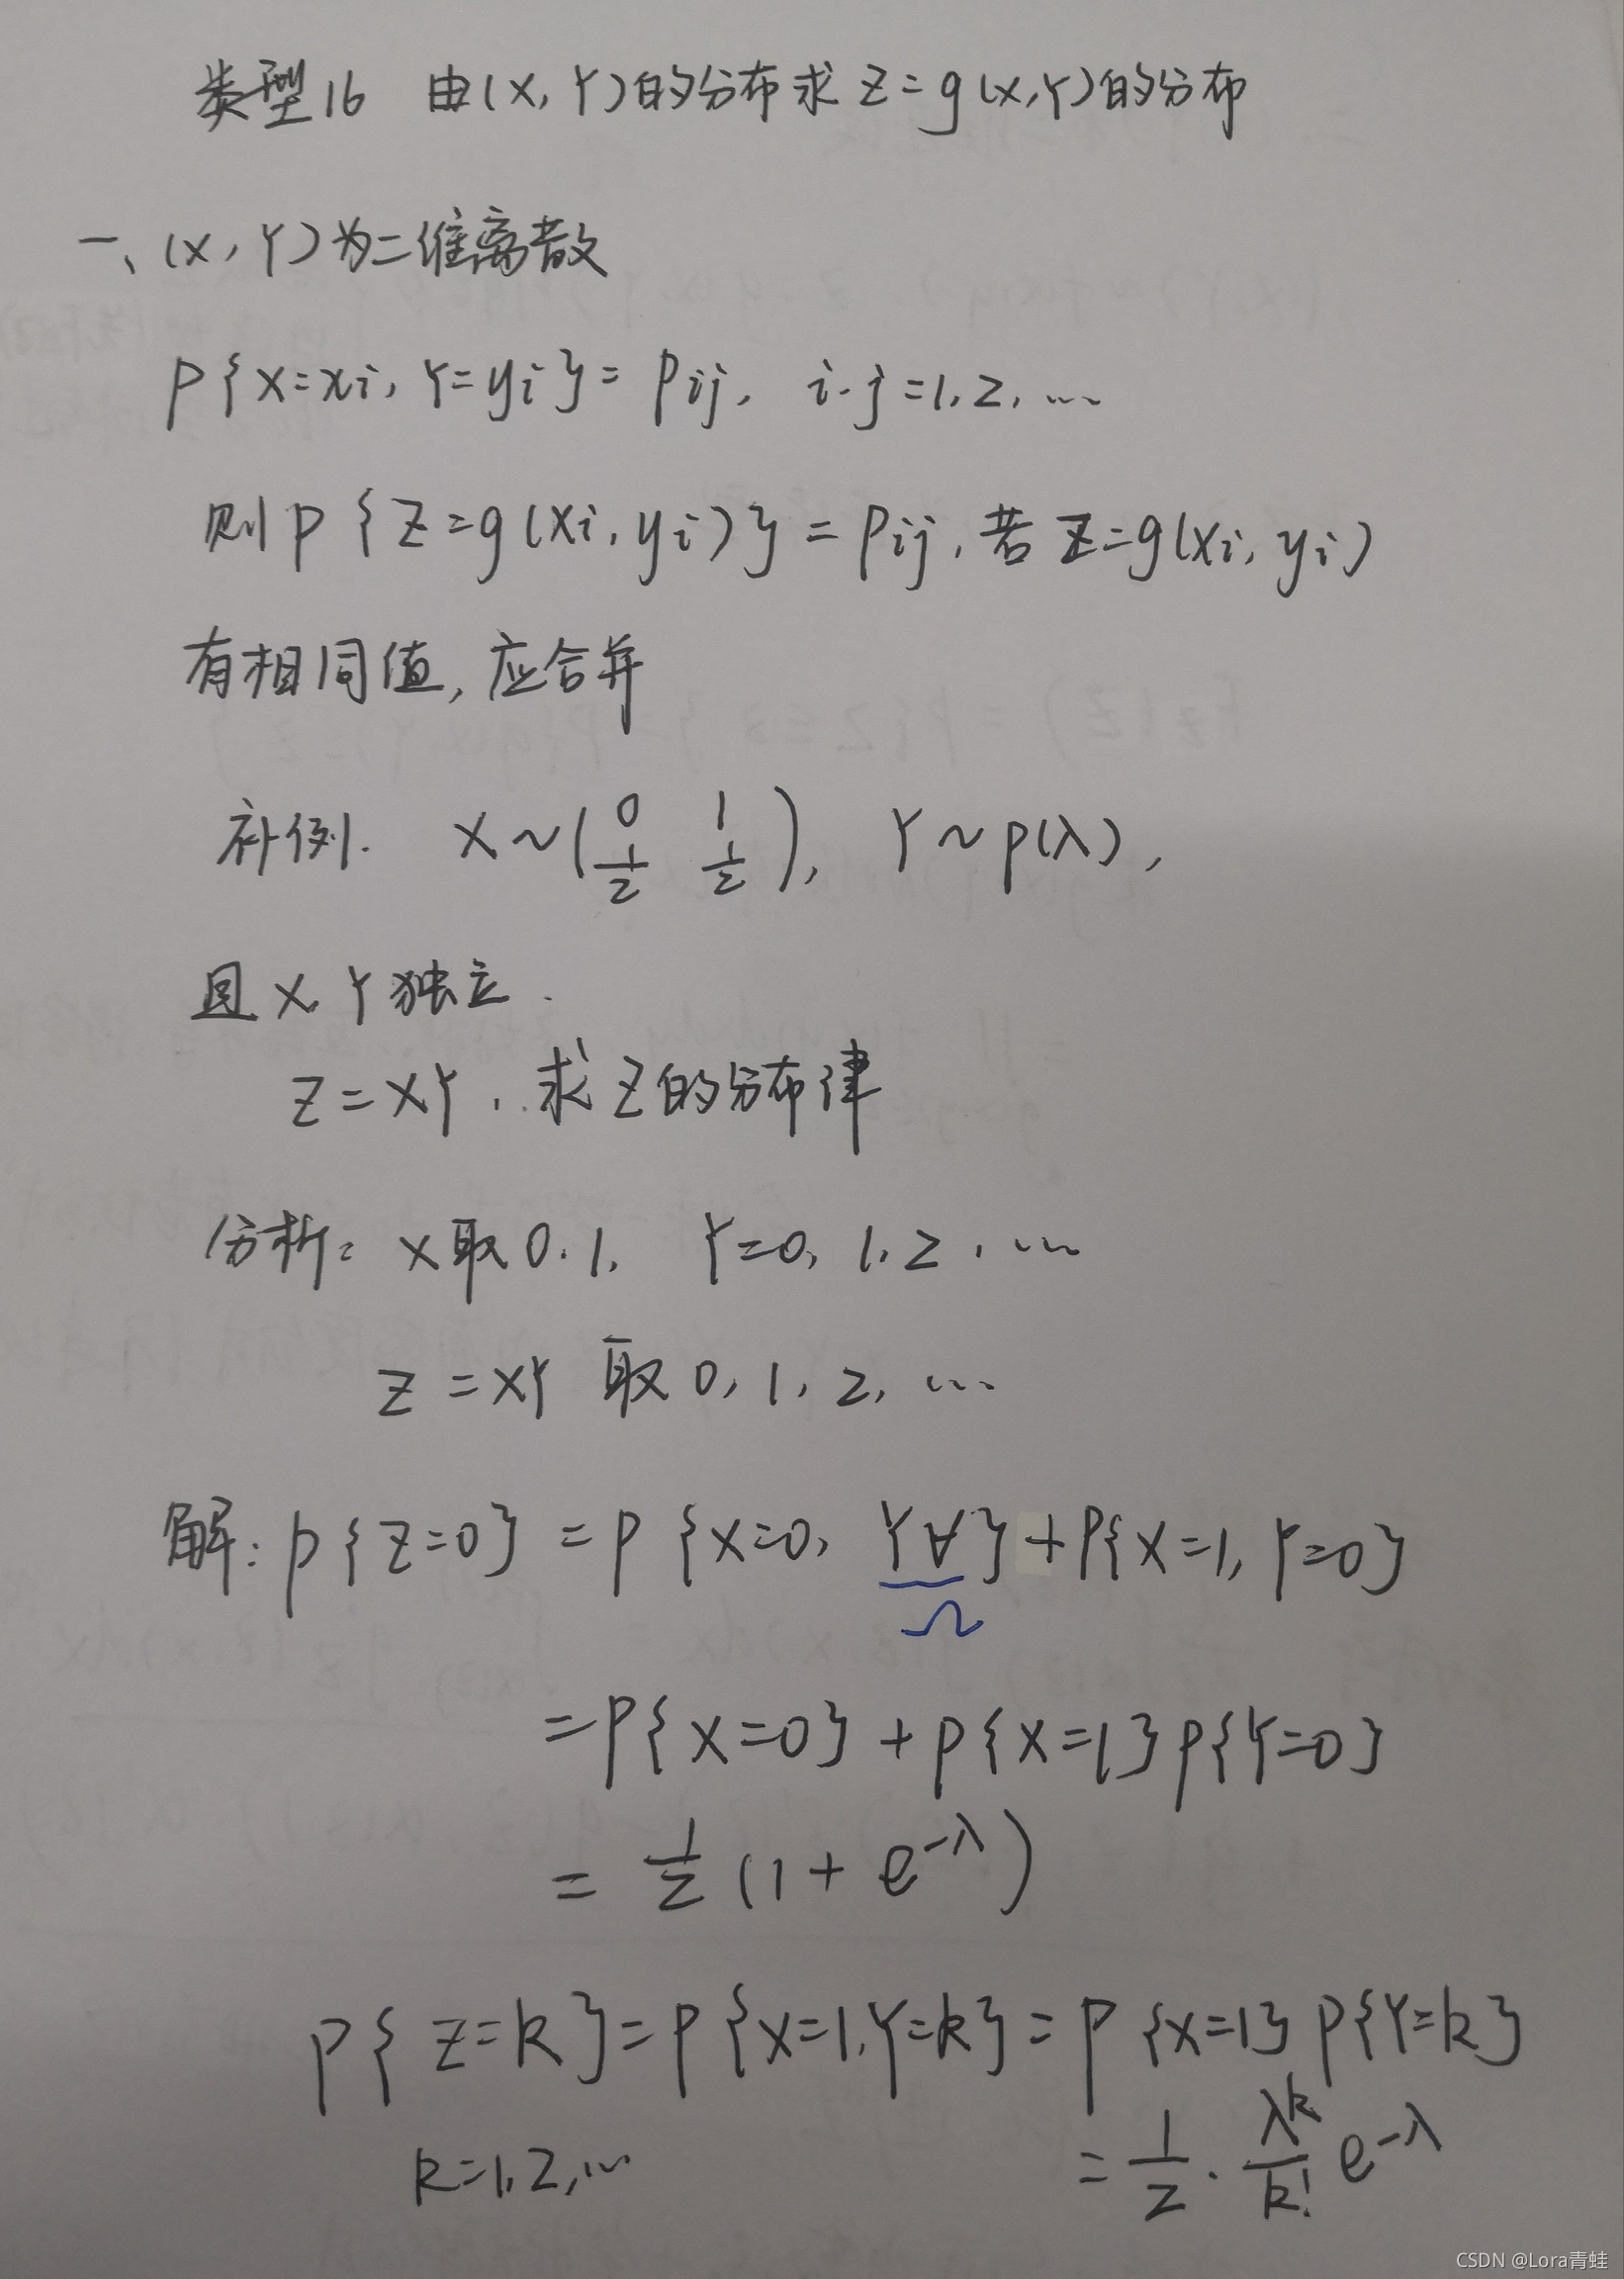 类型16 由(X,Y)的分布求Z=g(X,Y)的分布
一、(X,Y)为二维离散
P{X=xi,Y=yi}=Pij, i.j=1,2,…
则P{Z=g(xi,yi)}=Pij,若Z=g(xi,yi)
有相同值,应合并
补例. X~(0 1 / 1/2 1/2), Y~P(λ),
且X,Y独立.
Z=XY,求Z的分布律
分析: X取0.1, Y=0,1,2,…
Z=XY 取0,1,2,…
解: P{Z=0}=P{X=0, Y∀}+P{X=1,Y=0}
Ω
=P{X=0}+P{X=1}P{Y=0}
=1/2(1+e^{-λ})
P{Z=k}=P{X=1,Y=k}=P{X=1}P{Y=k}
k=1,2,… =1/2·λ^k/k! e^{-λ}
CSDN @Lora青蛙